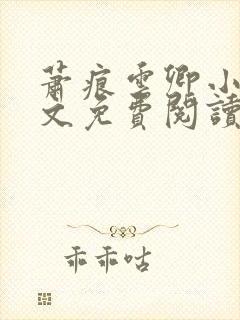 蕭痕雲卿小
文免費閱讀
乖乖咕